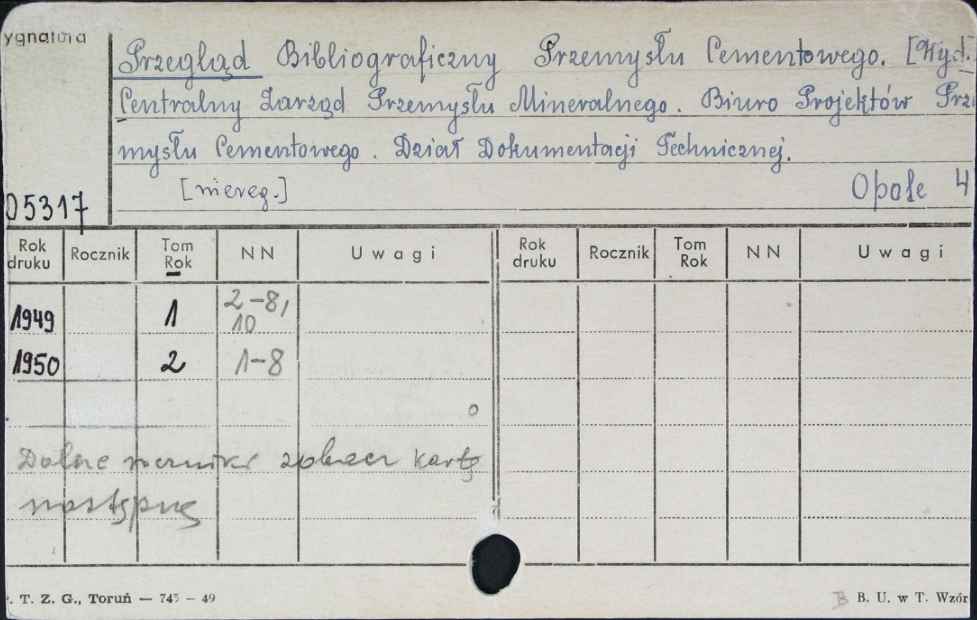 ygnatura
Przegląd Bibliograficzny Przemysłu Cementowego. [Wyd.
Centralny Zarząd Przemysłu Mineralnego. Biuro Projektów Prze
mysłu Cementowego. Dział Dokumentacji Technicznej.
[niereg.] Opole 4
05317
Rok druku Rocznik Tom Rok NN Uwagi Rok druku Rocznik Tom Rok NN Uwagi
1949 1 2-8, 10
1950 2 1-8
Dalsze roczniki zobacz kartę
następną
. T. Z. G., Toruń — 745 - 49 B. U. w T. Wzór